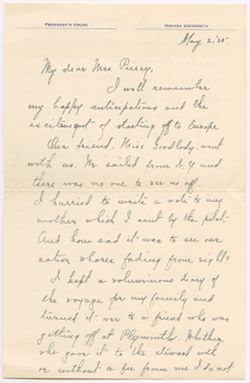 PRESIDENT'S HOUSE
INDIANA UNIVERSITY
May 2. '35.
My dear Mrs. Piercy,
I well remember
my happy anticipations and the
excitement of starting off to Europe
Our friend, Miss Goodbody, went
with us. We sailed from N.Y. and
there was no one to see us off.
I hurried to write a note to my
mother which I sent by the pilot-
And how sad it was to see our
native shores fading from sight!
I kept a voluminous diary of
the voyage for my family and
turned it over to a friend who was
getting off at Plymouth. Whether
she gave it to the steward with
or without a fee from me I do not